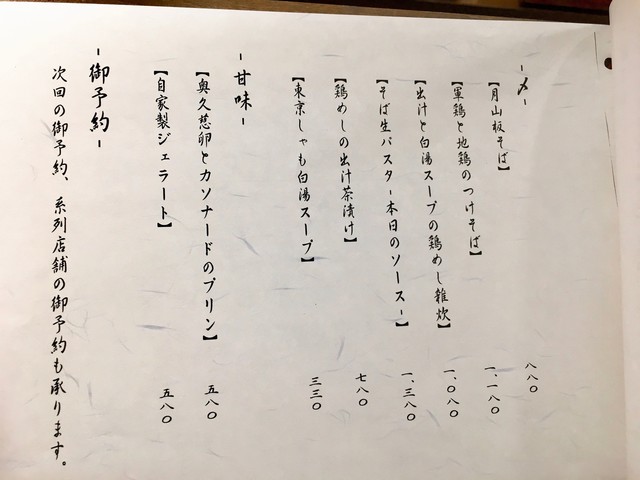 -〆-
【月山板そば】 八八〇
【軍鶏と地鶏のつけそば】 一、一八〇
【出汁と白湯スープの鶏めし雑炊】 一、〇八〇
【そば生パスタ-本日のソース-】 一、三八〇
【鶏めしの出汁茶漬け】 七八〇
【東京しゃも白湯スープ】 三三〇
-甘味-
【奥久慈卵とカソナードのプリン】 五八〇
【自家製ジェラート】 五八〇
-御予約-
次回の御予約、系列店舗の御予約も承ります。